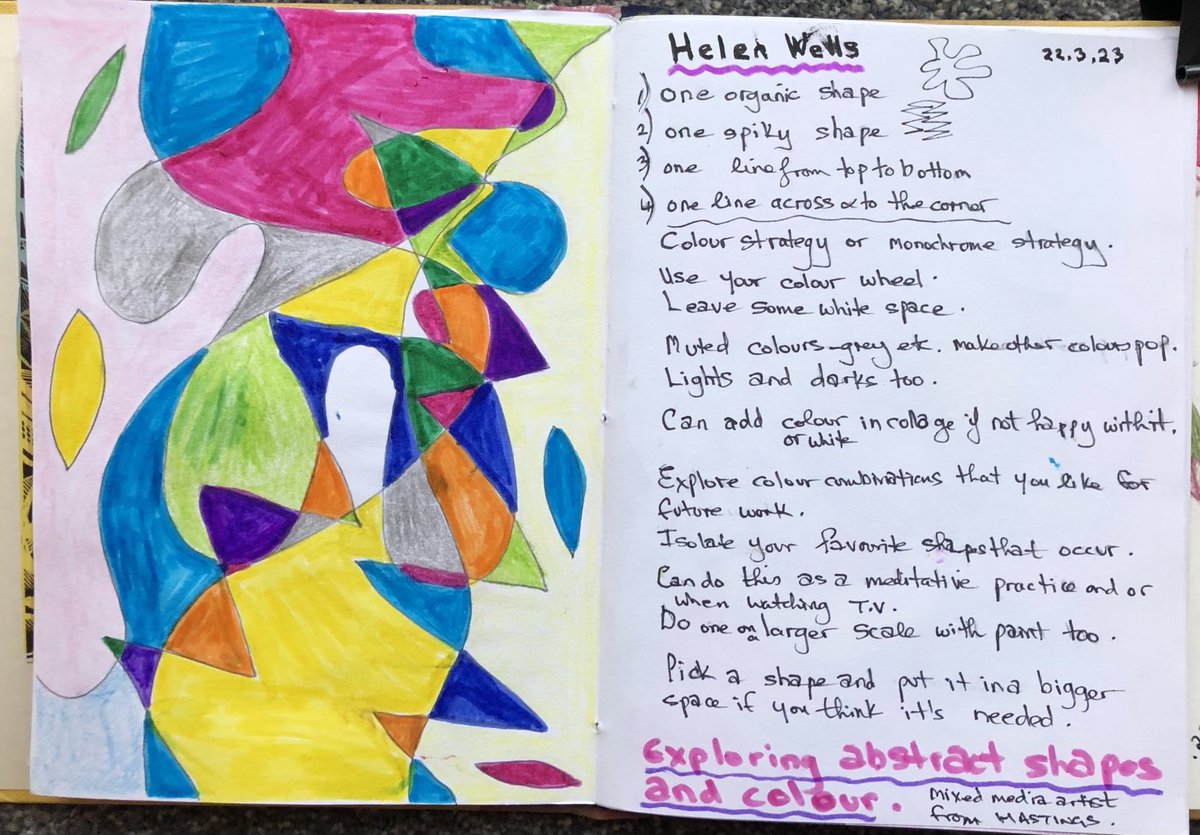 Helen Wells
22.3.23
1) one organic shape
2) one spiky shape
3) one line from top to bottom
4) one line across & to the corner
Colour strategy or monochrome strategy.
Use your colour wheel.
Leave some white space.
Muted colours - grey etc. make other colours pop.
Lights and darks too.
Can add colour in collage if not happy with it.
or white
Explore colour combinations that you like for
future work.
Isolate your favourite shapes that occur.
Can do this as a meditative practice and or
when watching T.V.
Do one on a larger scale with paint too.
Pick a shape and put it in a bigger
space if you think it's needed.
Exploring abstract shapes
and colour.
Mixed media artist
from HASTINGS.